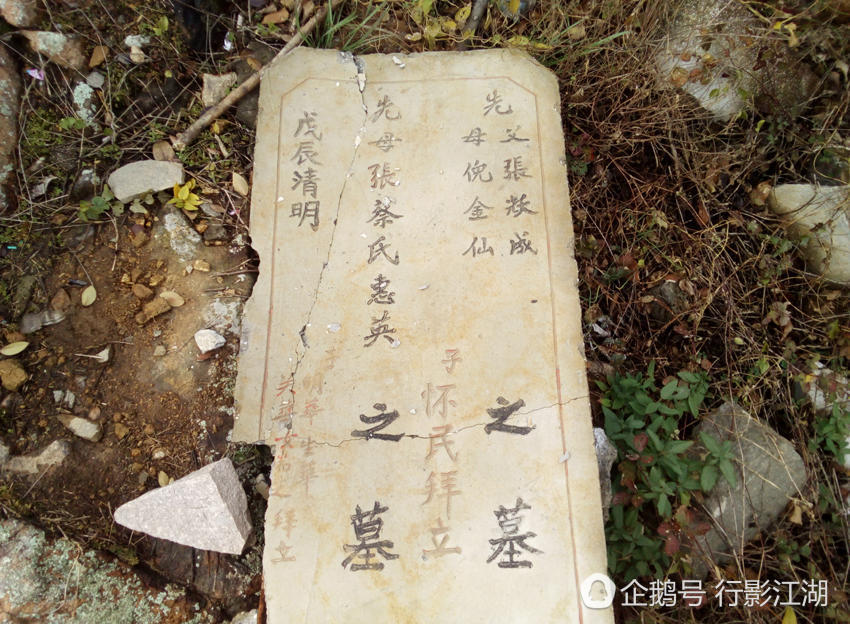 先父張敖成
母倪金仙
之墓
子怀民拜立
先母張蔡氏惠英
之墓
子明華生華
拜立
戊辰清明
企鹅号 行影江湖